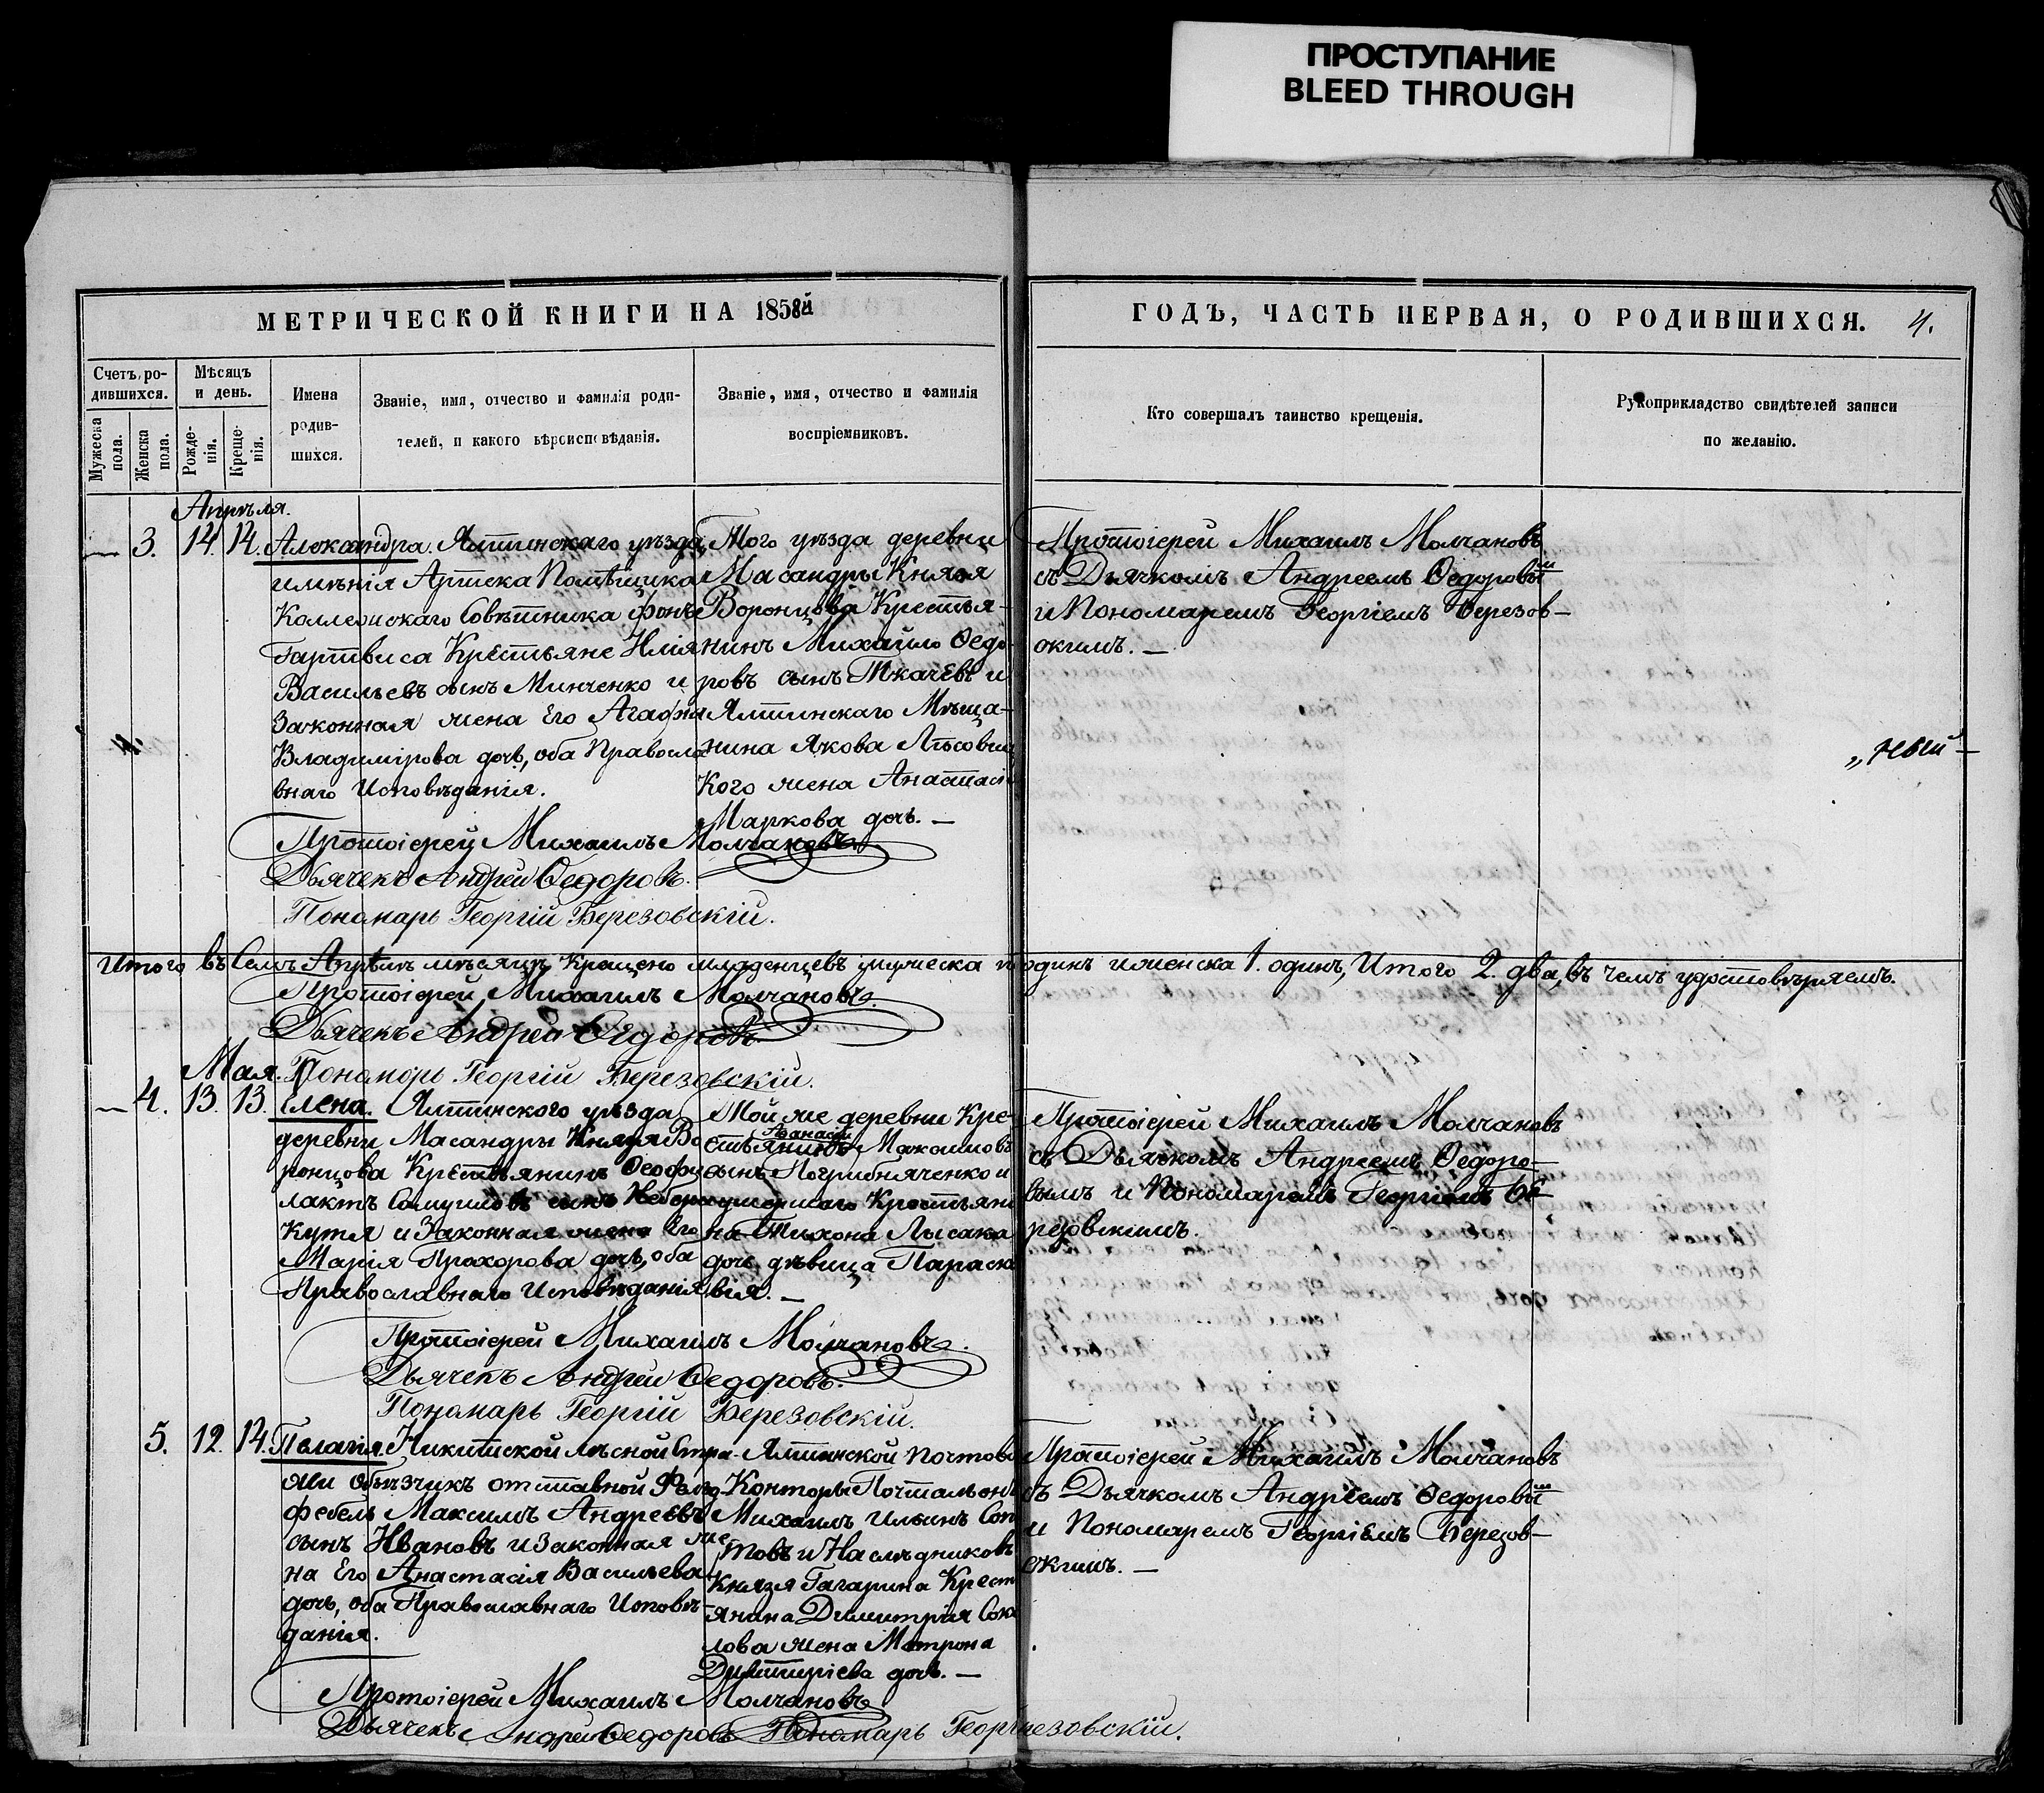 ПРОСТУПАНИЕ
BLEED THROUGH
МЕТРИЧЕСКОЙ КНИГИ НА 1858й
ГОДЪ, ЧАСТЬ ПЕРВАЯ, О РОДИВШИХСЯ. 4.
Счетъ ро-
дившихся.
Мужеска
пола.
Женска
пола.
Мѣсяцъ
и день.
Рожде-
нія.
Креще-
нія.
Имена
родив-
шихся.
Званіе, имя, отчество и фамилія роди-
телей, и какого вѣроисповѣданія.
Званіе, имя, отчество и фамилія
воспріемниковъ.
Кто совершалъ таинство крещенія.
Рукоприкладство свидѣтелей записи
по желанію.
Апрѣля.
— 3. 14. 14. Александра. Ялтинскаго уѣзда,
имѣнія Артека Помѣщика
Коллежскаго Совѣтника фонъ
Гартвиса Крестьяне Илія
Васильевъ сынъ Минченко и
Законная жена Его Агафія
Владимірова дочь, оба Правосла
внаго Исповѣданія.
Того уѣзда деревни
Масандры Князя
Воронцова Крестья-
нинъ Михайло Ѳедо
ровъ сынъ Ткачевъ и
Ялтинскаго Мѣща-
нина Якова Лѣсовиц
Кого жена Анастасі
Маркова дочь. —
Протоіерей Михаилъ Молчановъ
съ Дьячкомъ Андреемъ Ѳедоровым
и Пономаремъ Георгіемъ Березов-
скимъ. —
„ный" —
Протоіерей Михаилъ Молчановъ
Дьячекъ Андрей Ѳедоровъ.
Пономарь Георгій Березовскій.
Итого въ Семъ Апрѣлѣ мѣсяцѣ Крещено младенцевъ мужеска п один и женска 1. одинъ, Итого 2. два, въ чемъ удостовѣряемъ.
Протоіерей Михаилъ Молчановъ.
Дьячекъ Андрей Ѳедоровъ.
Пономарь Георгій Березовскій.
Мая.
— 4. 13. 13. Елена. Ялтинскаго уѣзда
деревни Масандры Князя Во
ронцова Крестьянинъ Ѳеофи
лактъ Самуиловъ сынъ Небора
Кутя и Законная жена Его
Марія Прохорова дочь, оба
Православнаго Исповѣданія
Той же деревни Кре-
Аѳанасій
стьянинъ Максимовъ
сынъ Погрибняченко и
умершаго Крестьяни
на Тихона Лысака
дочь дѣвица Параске
вія. —
Протоіерей Михаилъ Молчановъ
съ Дьячкомъ Андреемъ Ѳедоро-
вымъ и Пономаремъ Георгіемъ Бе
резовскимъ.
Протоіерей Михаилъ Молчановъ.
Дьячекъ Андрей Ѳедоровъ.
Пономарь Георгій Березовскій.
5. 12. 14. Пелагія. Никитской лѣсной Стра-
жи объѣзчикъ отставной Фельд
фебель Максимъ Андреевъ
сынъ Ивановъ и Законная же
на Его Анастасія Васильева
дочь, оба Православнаго Исповѣ-
данія.
Ялтинской Почтово
Конторы Почталіонъ
Михаилъ Ильинъ Соп
товъ и Наслѣдниковъ
Князя Гагарина Крест
янина Димитрія Соко
лова жена Матрона
Дмитріева дочь. —
Протоіерей Михаилъ Молчановъ
съ Дьячкомъ Андреемъ Ѳедоровым
и Пономаремъ Георгіемъ Березов-
скимъ. —
Протоіерей Михаилъ Молчановъ
Дьячекъ Андрей Ѳедоровъ Пономарь Георгі езовскій.